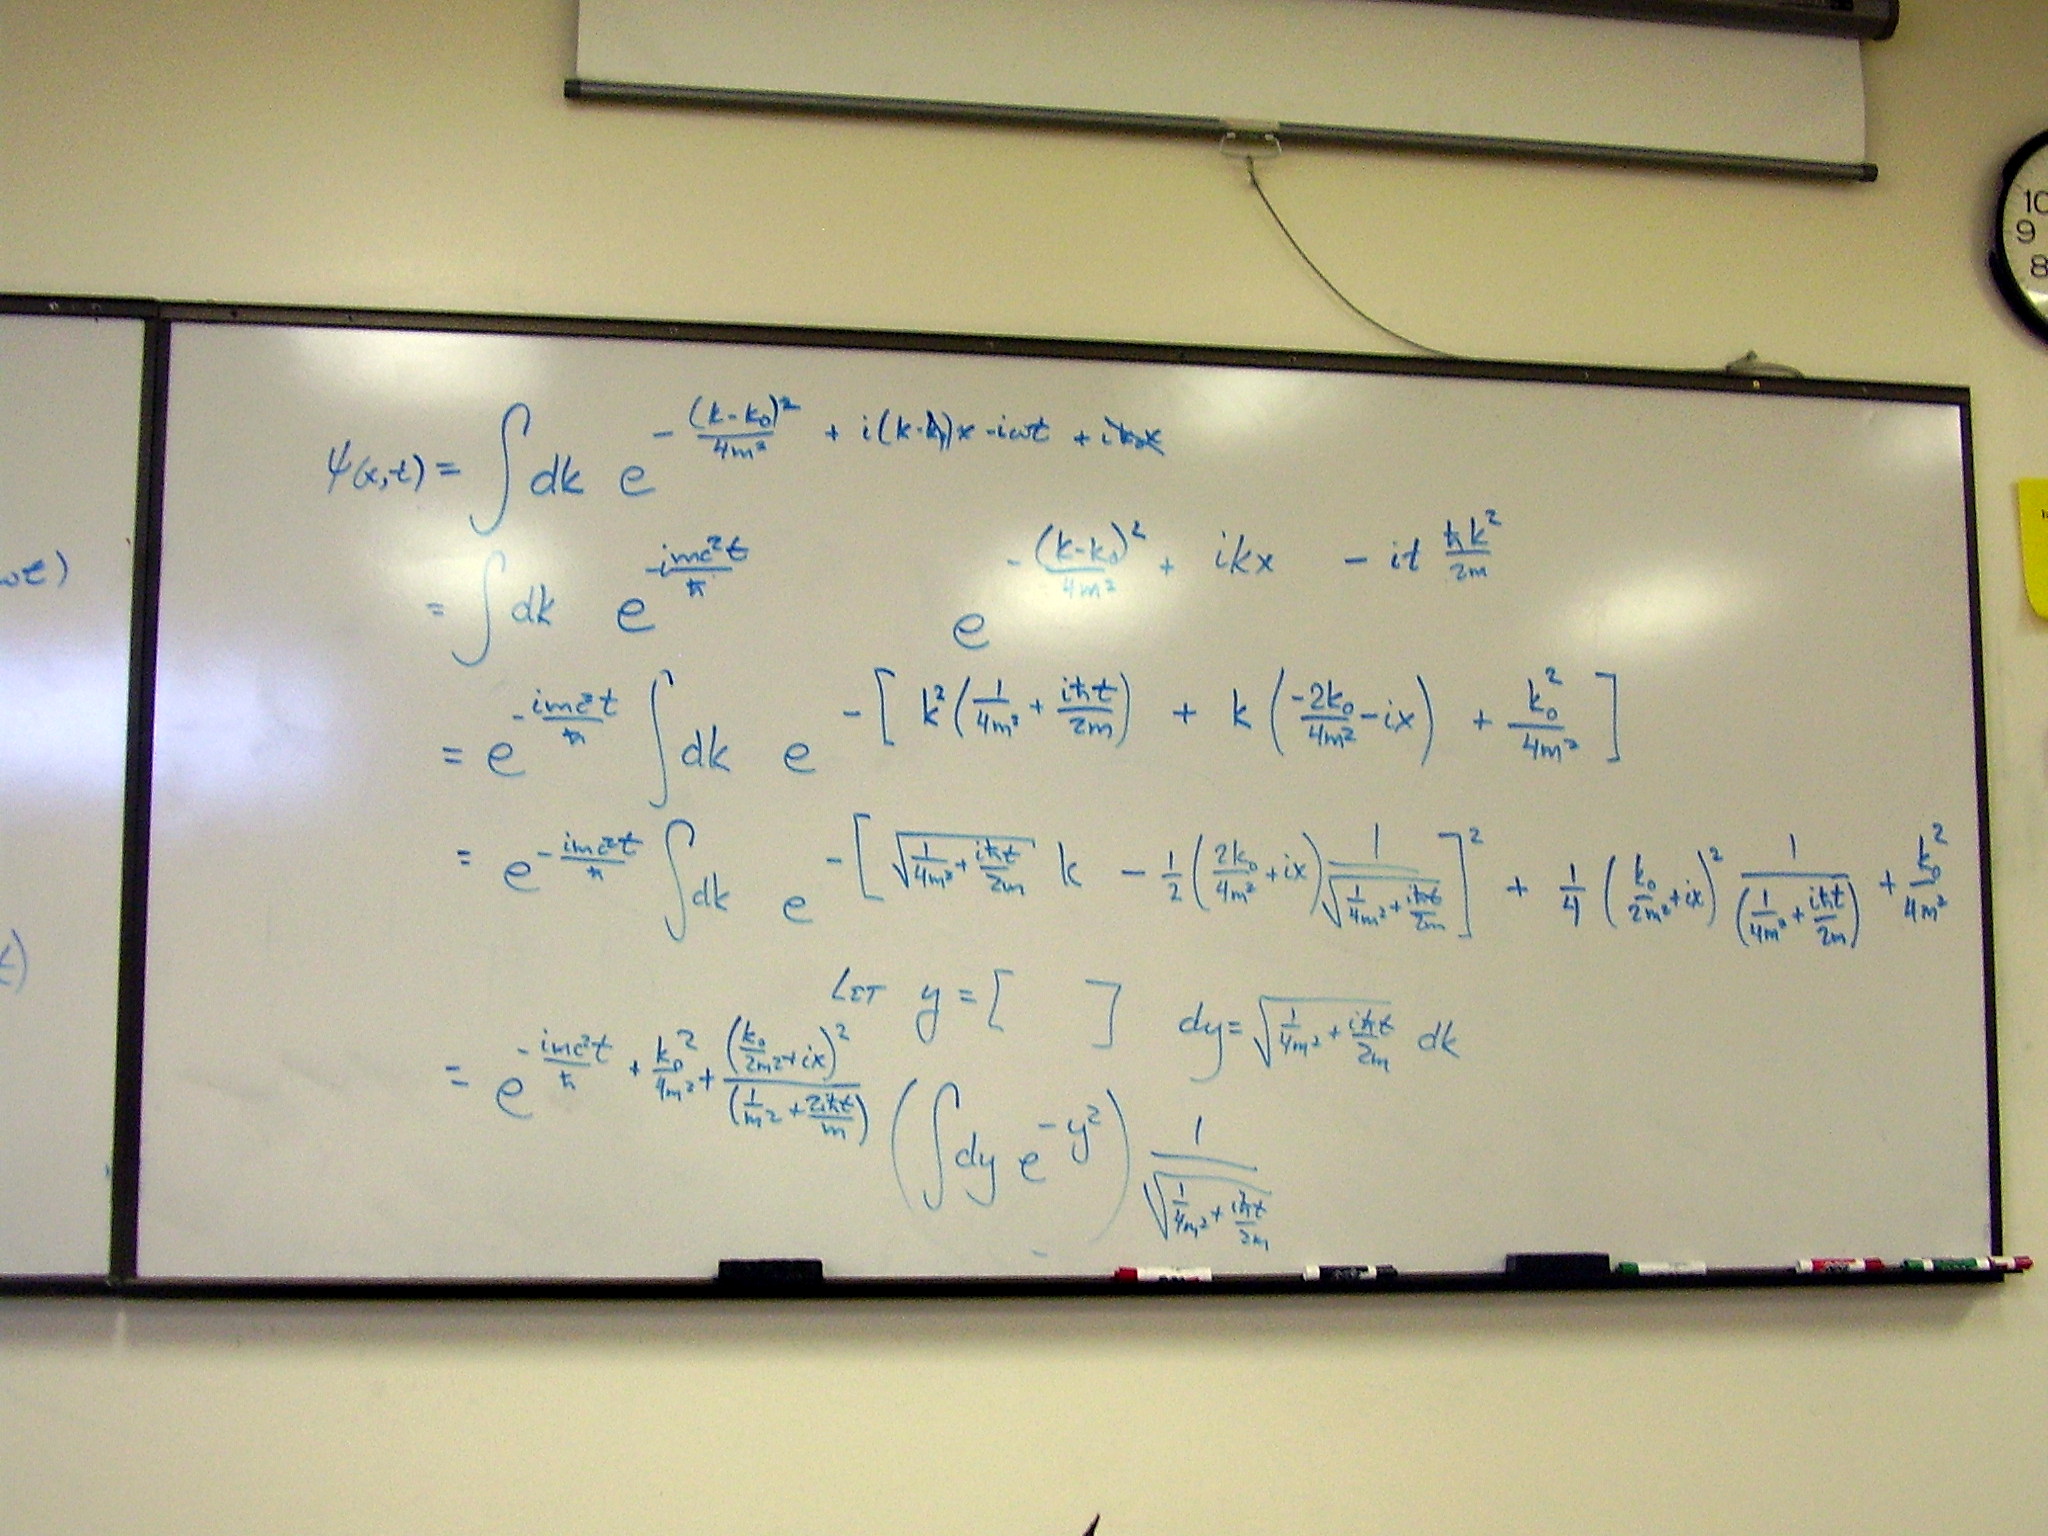 ψ(x,t) = ∫ dk e^{-(k-k₀)²/4m² + i(k-k₀)x - iωt + ik₀x}
= ∫ dk e^{-imc²t/ħ} e^{-(k-k₀)²/4m² + ikx - it ħk²/2m}
= e^{-imc²t/ħ} ∫ dk e^{-[k²(1/4m² + iħt/2m) + k(-2k₀/4m² - ix) + k₀²/4m²]}
= e^{-imc²t/ħ} ∫ dk e^{-[√(1/4m² + iħt/2m) k - 1/2 (2k₀/4m² + ix) 1/√(1/4m² + iħt/2m)]² + 1/4 (k₀/2m² + ix)² 1/(1/4m² + iħt/2m) + k₀²/4m²}
LET y = [ ] dy = √(1/4m² + iħt/2m) dk
= e^{-imc²t/ħ + k₀²/4m² + (k₀/2m² + ix)²/(1/m² + 2iħt/m)} (∫ dy e^{-y²}) 1/√(1/4m² + iħt/2m)
ωt)
10
9
8